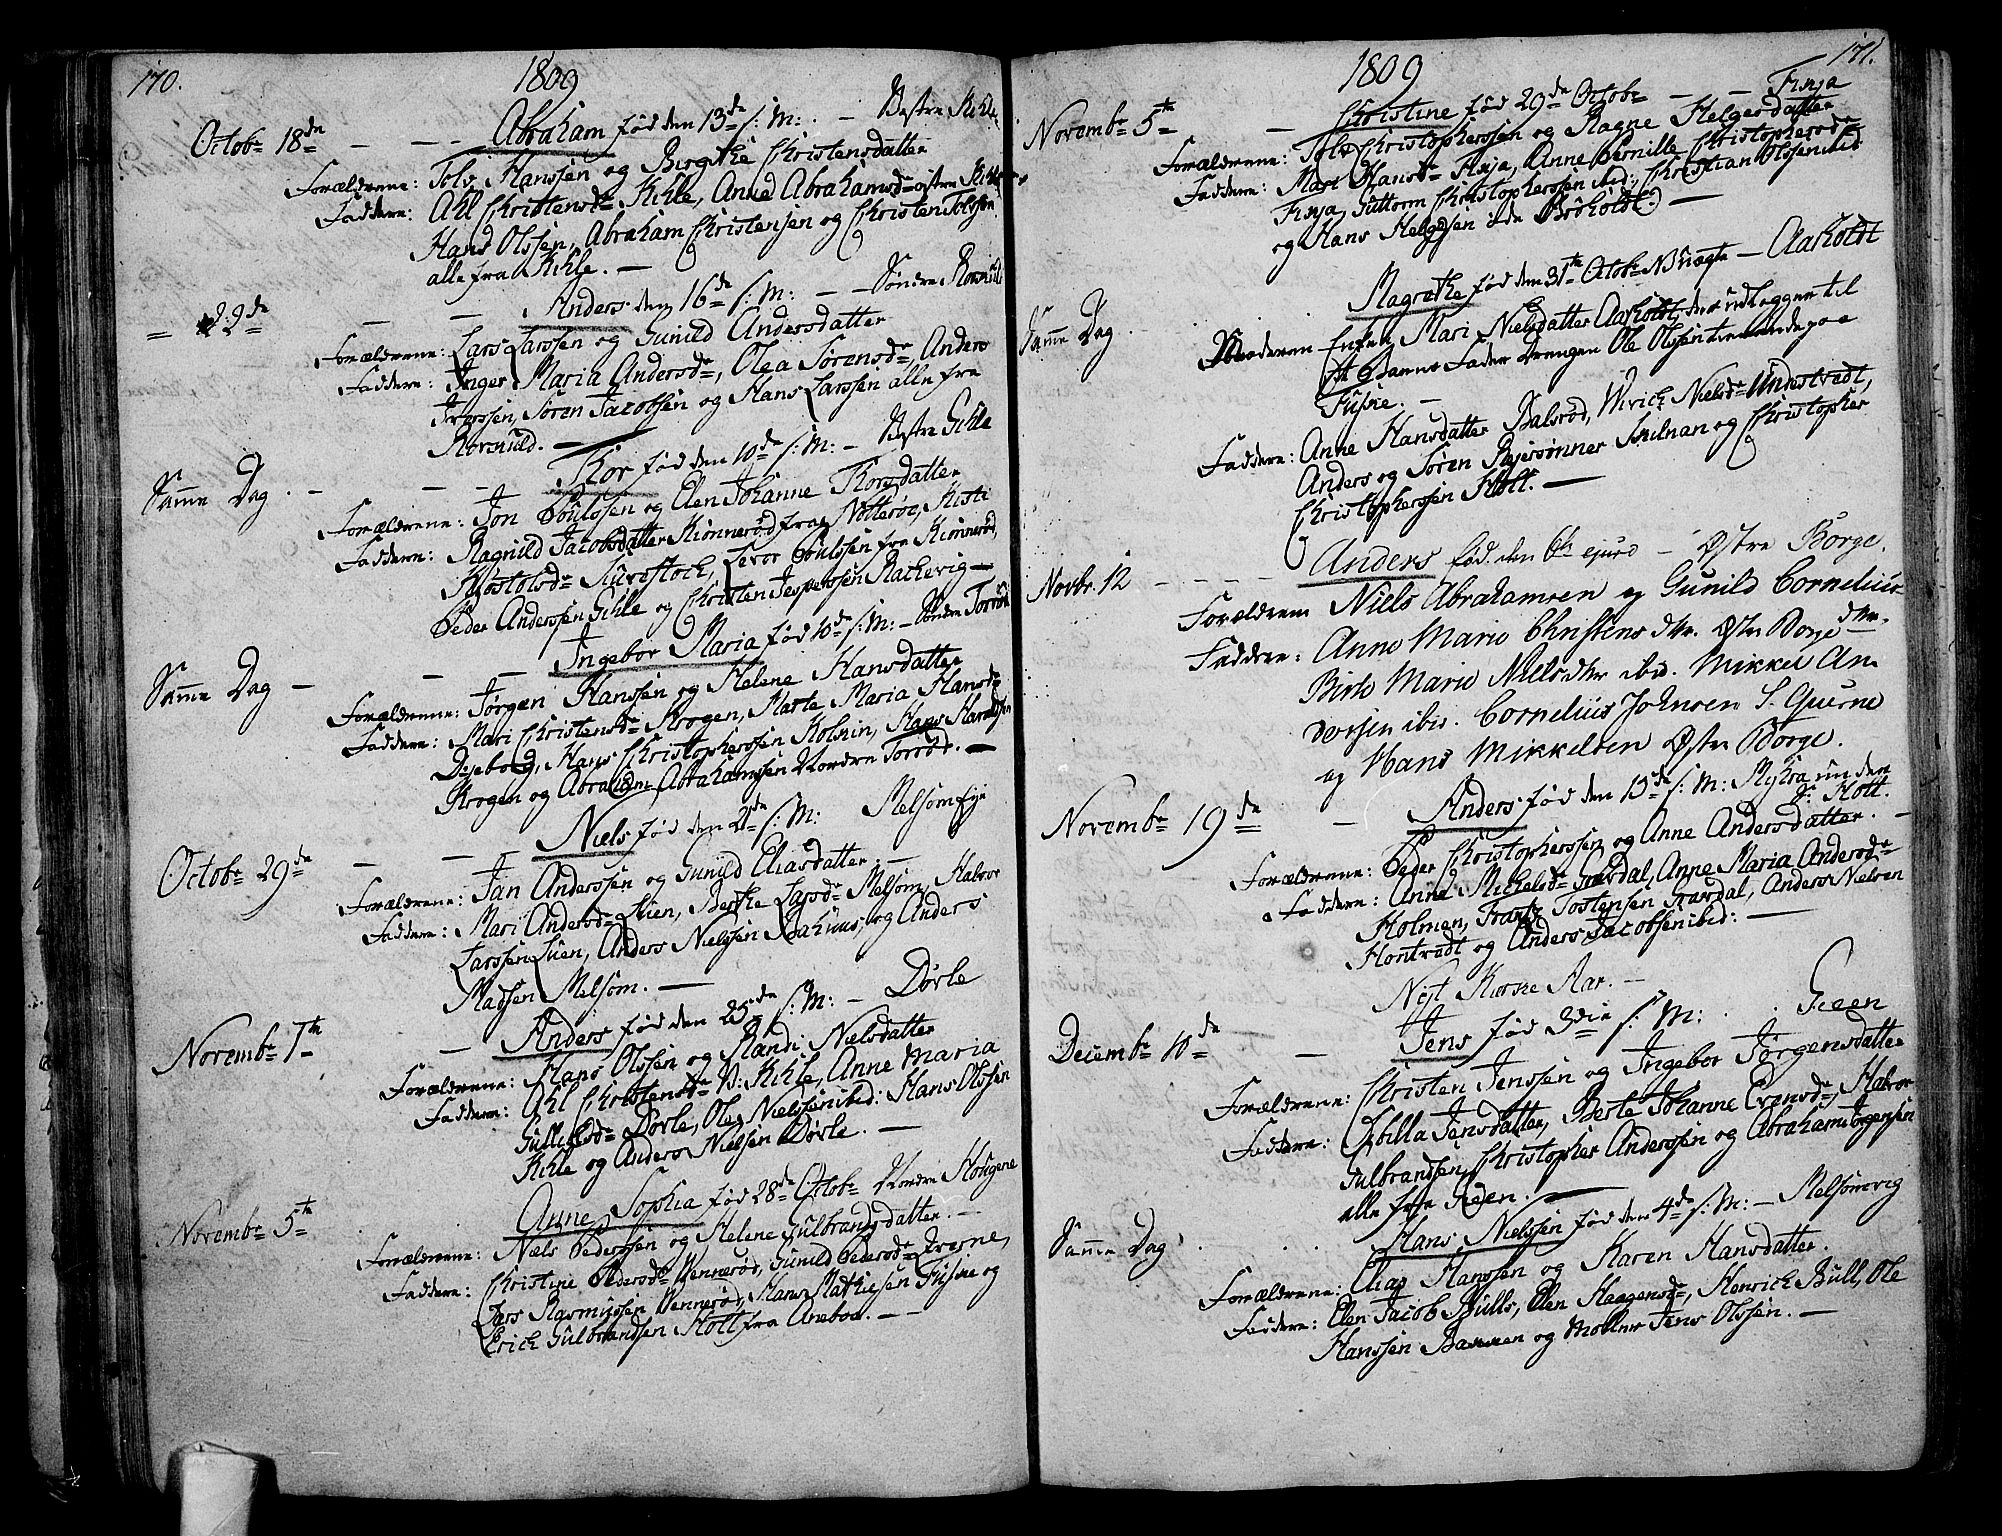 170.
1809
Octobr 18de — — — Abraham fød den 13de s: M: . — Vestre Kihle
Forældrene: Tolv Hanssen og Birgithe Christensdatter
Faddere: Ahl Christensdr Kihle, Anne Abrahamsdr østre Kihle
Hans Olssen, Abraham Christensen og Christen Tolfsen
alle fra Kihle. —
= 22de — — Anders den 16de s: M: — — Søndre
Forældrene: Lars Larssen og Gunild Andersdatter
Faddere: Inger Maria Andersdr, Olea Sørensdr, Anders
Iverssen, Søren Jacobsen og Hans Larssen alle fra
Samme Dag. — — — Thor fød den 10de s: M: — Vestre Gihle
Forældrene: Jon Poulssen og Elen Johanne Thorsdatter
Faddere: Ragnild Jacobsdatter Kimnerød fra Nøtterøe, Kisti
Kiøstolsdr Kurestock, Levor Poulssen fra Kimnerød,
Peder Anderssen Gihle og Christen Jespersen Rackevig —
Samme Dag — — — Ingebor Maria fød 10de s: M: — Søndre Torrød
Forældrene: Jørgen Hanssen og Helene Hansdatter
Faddere: Mari Christensdr Krogen, Marte Maria Hansdr
Hans Christopherssen Holmen, Hans Haraldsen
Krogen og Abraham Abrahamssen Nordre Torrød. —
Octobr 29de — — — Niels fød den 21de s: M: Melsom
Forældrene: Jan Anderssen og Gunild Eliasdatter. —
Faddere: Mari Andersdr Lien, Berthe Larsdr Melsom, Halvor
Larssen Lien, Anders Nielssen Aahuus, og Anders
Madsen Melsom. —
Novembr 1te — Anders fød den 25de s: M: — Dørle
Forældrene: Hans Olssen og Randi Nielsdatter
Faddere: Ahl Christensdr V: Kihle, Anne Maria
Gullichsdr Dørle, Ole Nielssen ibid: Hans Olssen
Kihle og Anders Nielsen Dørle. —
Novembr 5te . Anne Sophia fød 28de Octobr Nordre Hougene
Forældrene: Niels Pederssen og Helene Gulbrandsdatter. —
Faddere: Christine Pedersdr Vennerød, Gunild Pedersdr
Lars Rasmussen Vennerød, Hans Mathiesen Fusie og
Erich Gulbrandsen Hott fra Aneboe. —
171.
1809
Novembr 5te — Christine fød 29de Octobr — — Firja
Forældrene: Tolv Christopherssen og Ragne Helgesdatter
Faddere: Mari Hansdr Firja, Anne Pernille Christophersdr
Firja, Guttorm Christopherssen ibid:, Christian Olssen ibid
og Hans Helgesen ibd Brøholdt. —
Samme Dag . Magrethe fød den 31te Octobr N3 uægte — Aasholdt
Moderen Enken Mari Nielsdatter Aasholdt, der udlægger til
sit Barns Fader Drengen Ole Olssen tienende paa
Fusie. —
Faddere: Anne Hansdatter Balsrød, Ulrich Nielsdr Undestvedt,
Anders og Søren Reiersønner Skilnan og Christopher
Christopherssen Hott. —
Novbr. 12 — — — — Anders fød den 6te ejusd — Østre Borge.
Forældrene Niels Abrahamsen og Gunild Cornelius
dtter.
Faddere: Anne Marie Christens dtter. Østre Borge —
Birte Marie Nielsdtter ibid. Mikkel An-
dersen ibid. Cornelius Johnsen S. Guerne
og Hans Mikkelsen Østre Borge.
Novembr 19de — Anders fød den 13de s: M: Myhra under
Hott.
Forældrene: Peder Christopherssen og Anne Andersdatter. —
Faddere: Anne Michelsdr Gravdal, Anne Maria Andersdr
Holmen, Frantz Tostensen Gravdal, Anders Nielsen
Hontvedt og Anders Jacobsen ibid: —
Nyt Kirke Aar. —
Decembr 10de — Jens fød 3die s: M: . . Gieen
Forældrene: Christen Jenssen og Ingebor Jørgensdatter
Faddere: Sybilla Jensdatter, Berte Johanne Evensdr, Halvor
Gulbrandsen, Christopher Anderssen og Abraham Jørgensen
alle fra Gieen. —
Samme Dag . . Hans Nielssen fød den 4de s: M: — Melsomvig
Forældrene: Elias Hanssen og Karen Hansdatter.
Faddere: Elen Jacob Bulls, Elen Haagensdr, Henrich Bull, Ole
Hanssen Backen og Moller Jens Olssen. —